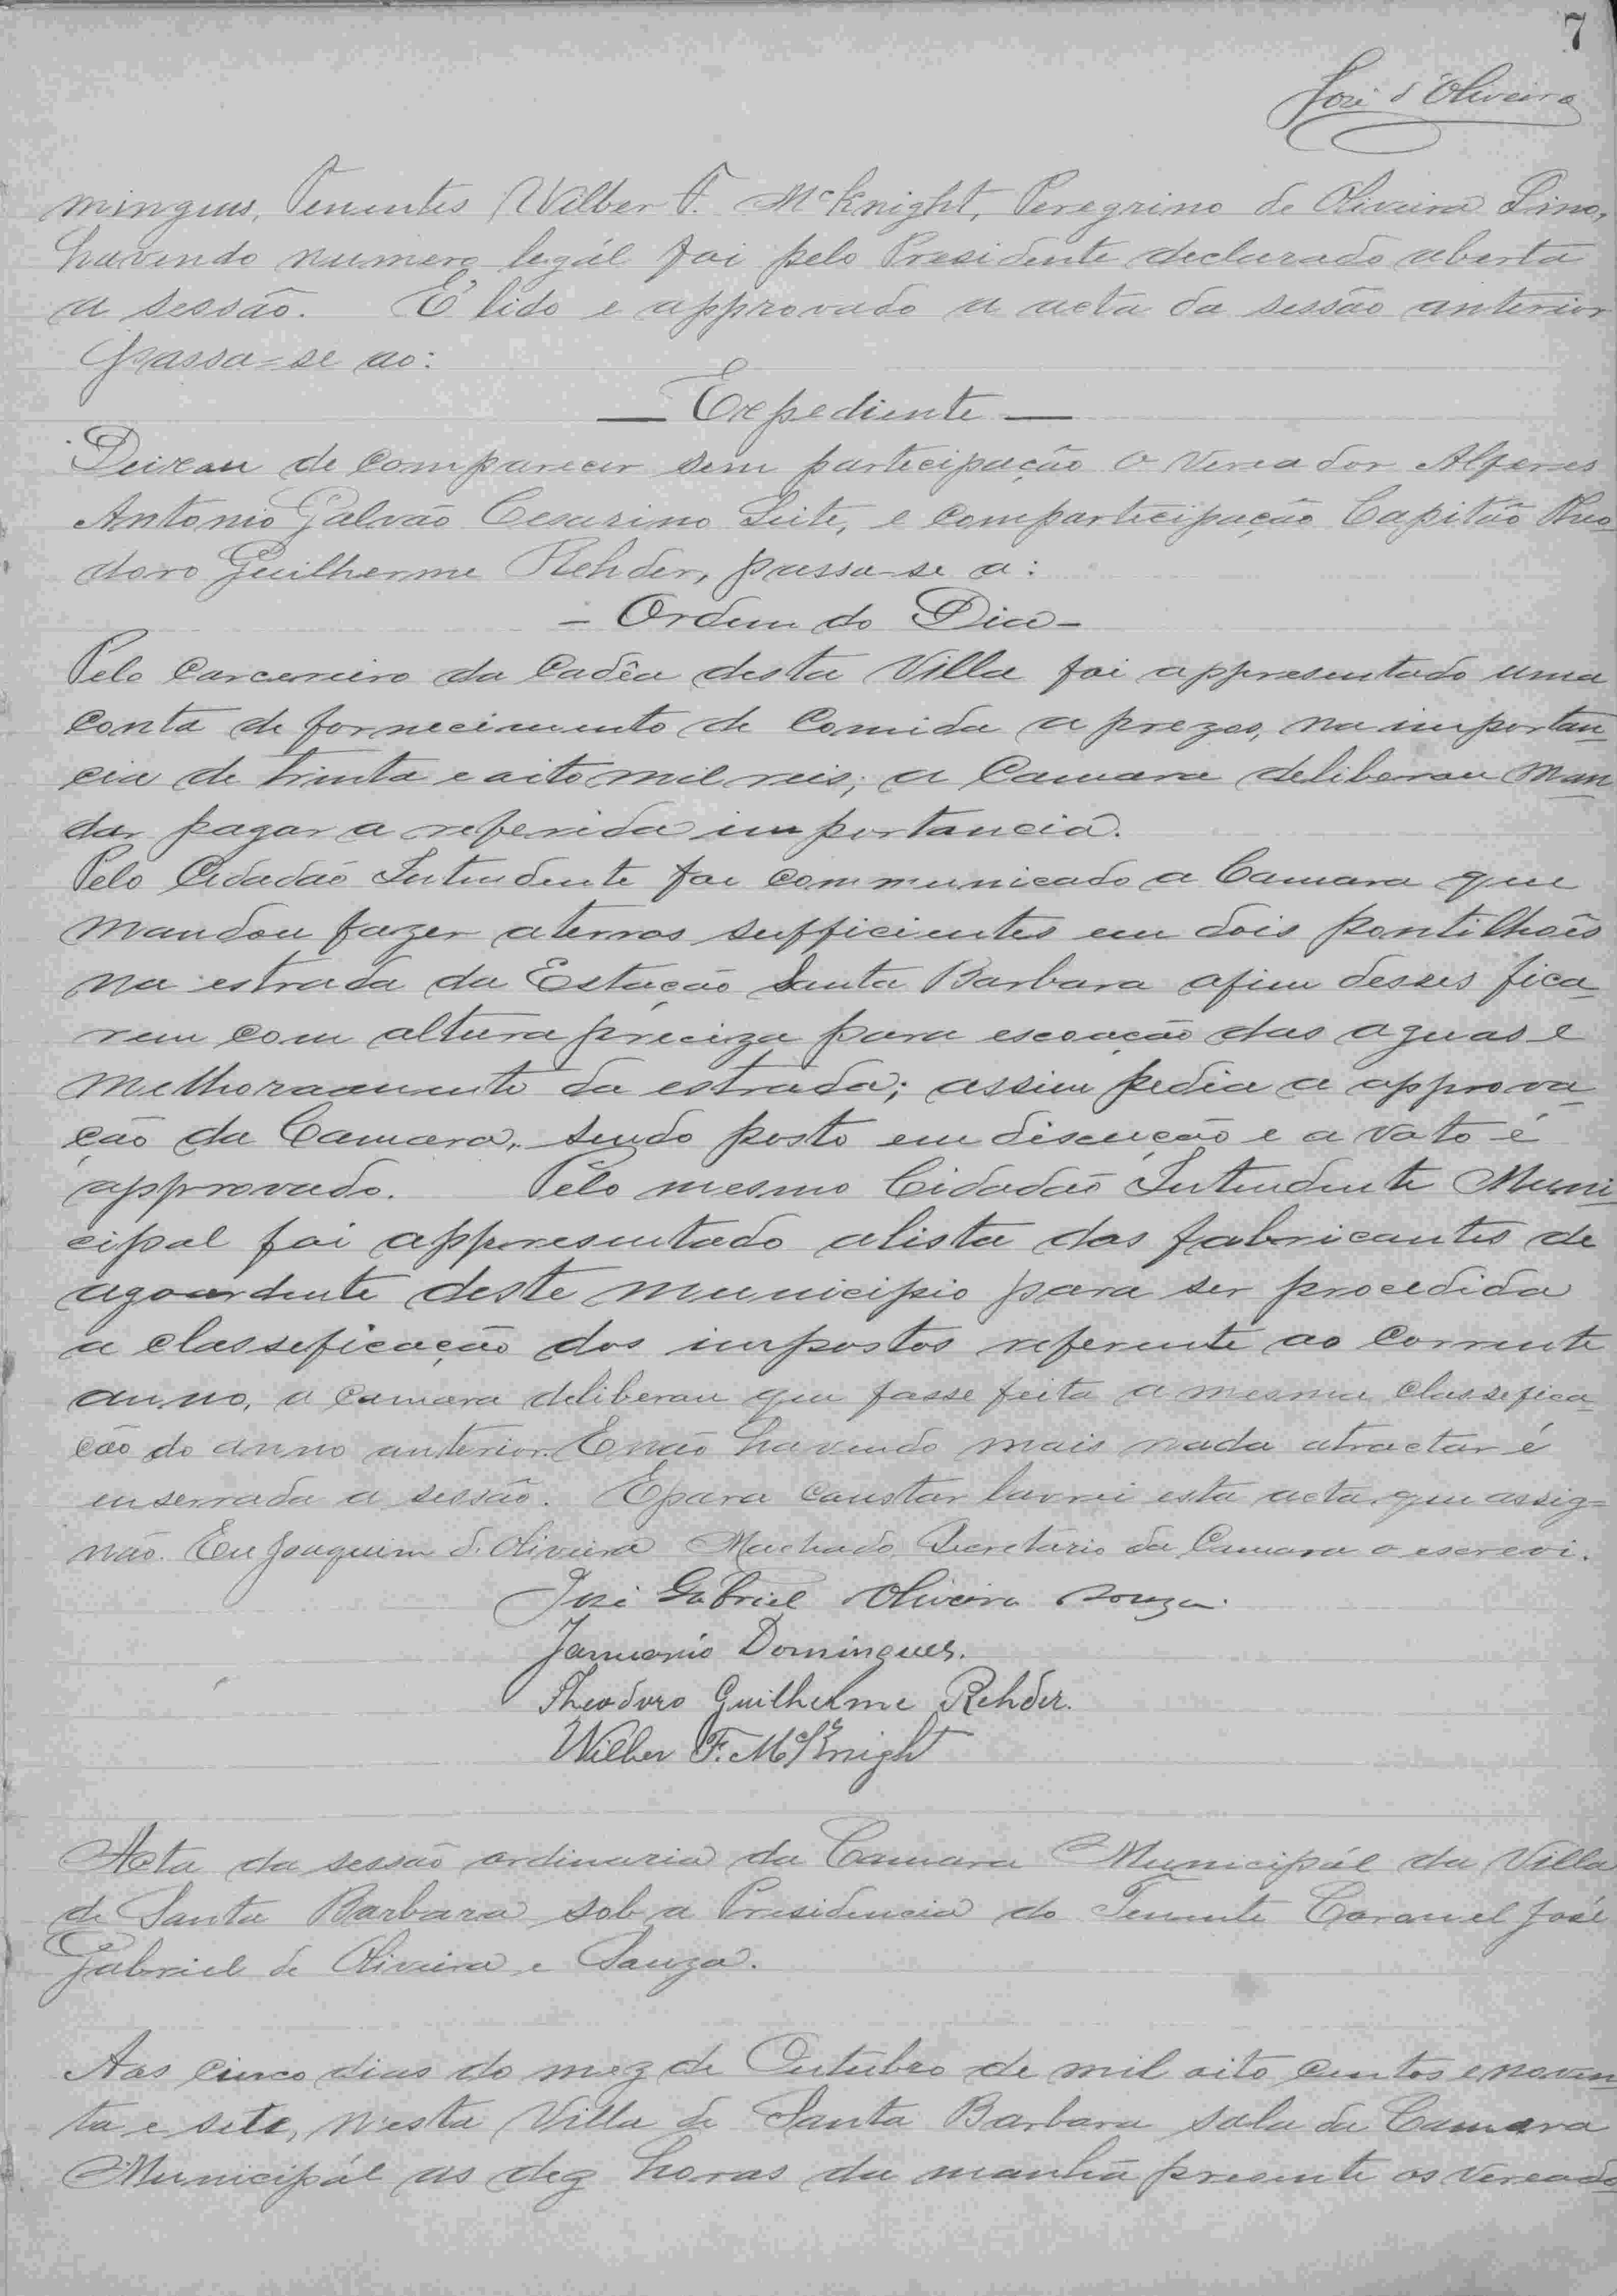 7
José d'Oliveira
mingues, Tenentes Wilber F. McKnight, Peregrino de Oliveira Lino,
havendo numero legál foi pelo Presidente declarado aberta
a sessão. É lido e approvado a acta da sessão anterior
passa-se ao:
— Expediente —
Deixou de comparecer sem participação o Vereador Alferes
Antonio Galvão Cesarino Leite, e comparticipação Capitão Theo
doro Guilherme Rehder, passa-se a:
- Ordem do Dia -
Pelo Carcereiro da Cadêa desta Villa foi appresentado uma
Conta de fornecimento de Comida a prezos, na importan
cia de trinta e oito mil reis; a Camara deliberou Man
dar pagar a referida importancia.
Pelo Cidadão Intendente foi communicado a Camara que
mandou fazer aterros sufficientes em dois pontilhões
na estrada da Estação Santa Barbara afim desses fica
rem com altura preciza para escoação das aguas e
melhoramento da estrada; assim pedia a approva
ção da Camara, sendo posto em discução e a voto é
approvado. Pelo mesmo Cidadão Intendente Muni
cipal foi appresentado alista dos fabricantes de
agoardente deste municipio para ser procedida
a classeficação dos impostos referente ao Corrente
anno, a Camara deliberou que fosse feita a mesma classefica
ção do anno anterior. E não havendo mais nada atractar é
enserrada a sessão. E para constar lavrei esta acta que assig=
não. Eu Joaquim de Oliveira Machado Secretario da Camara o escrevi.
José Gabriel Oliveira Souza.
Januario Domingues.
Theodoro Guilherme Rehder.
Wilber F. McKnight
Acta da sessão ordinaria da Camara Municipál da Villa
de Santa Barbara sob a Presidencia do Tenente Coronel José
Gabriel de Oliveira e Souza.
Aos cinco dias do mez de Outubro de mil oito centos e noven
ta e sete, nesta Villa de Santa Barbara sala da Camara
Municipál as dez horas da manhã presente os Vereado